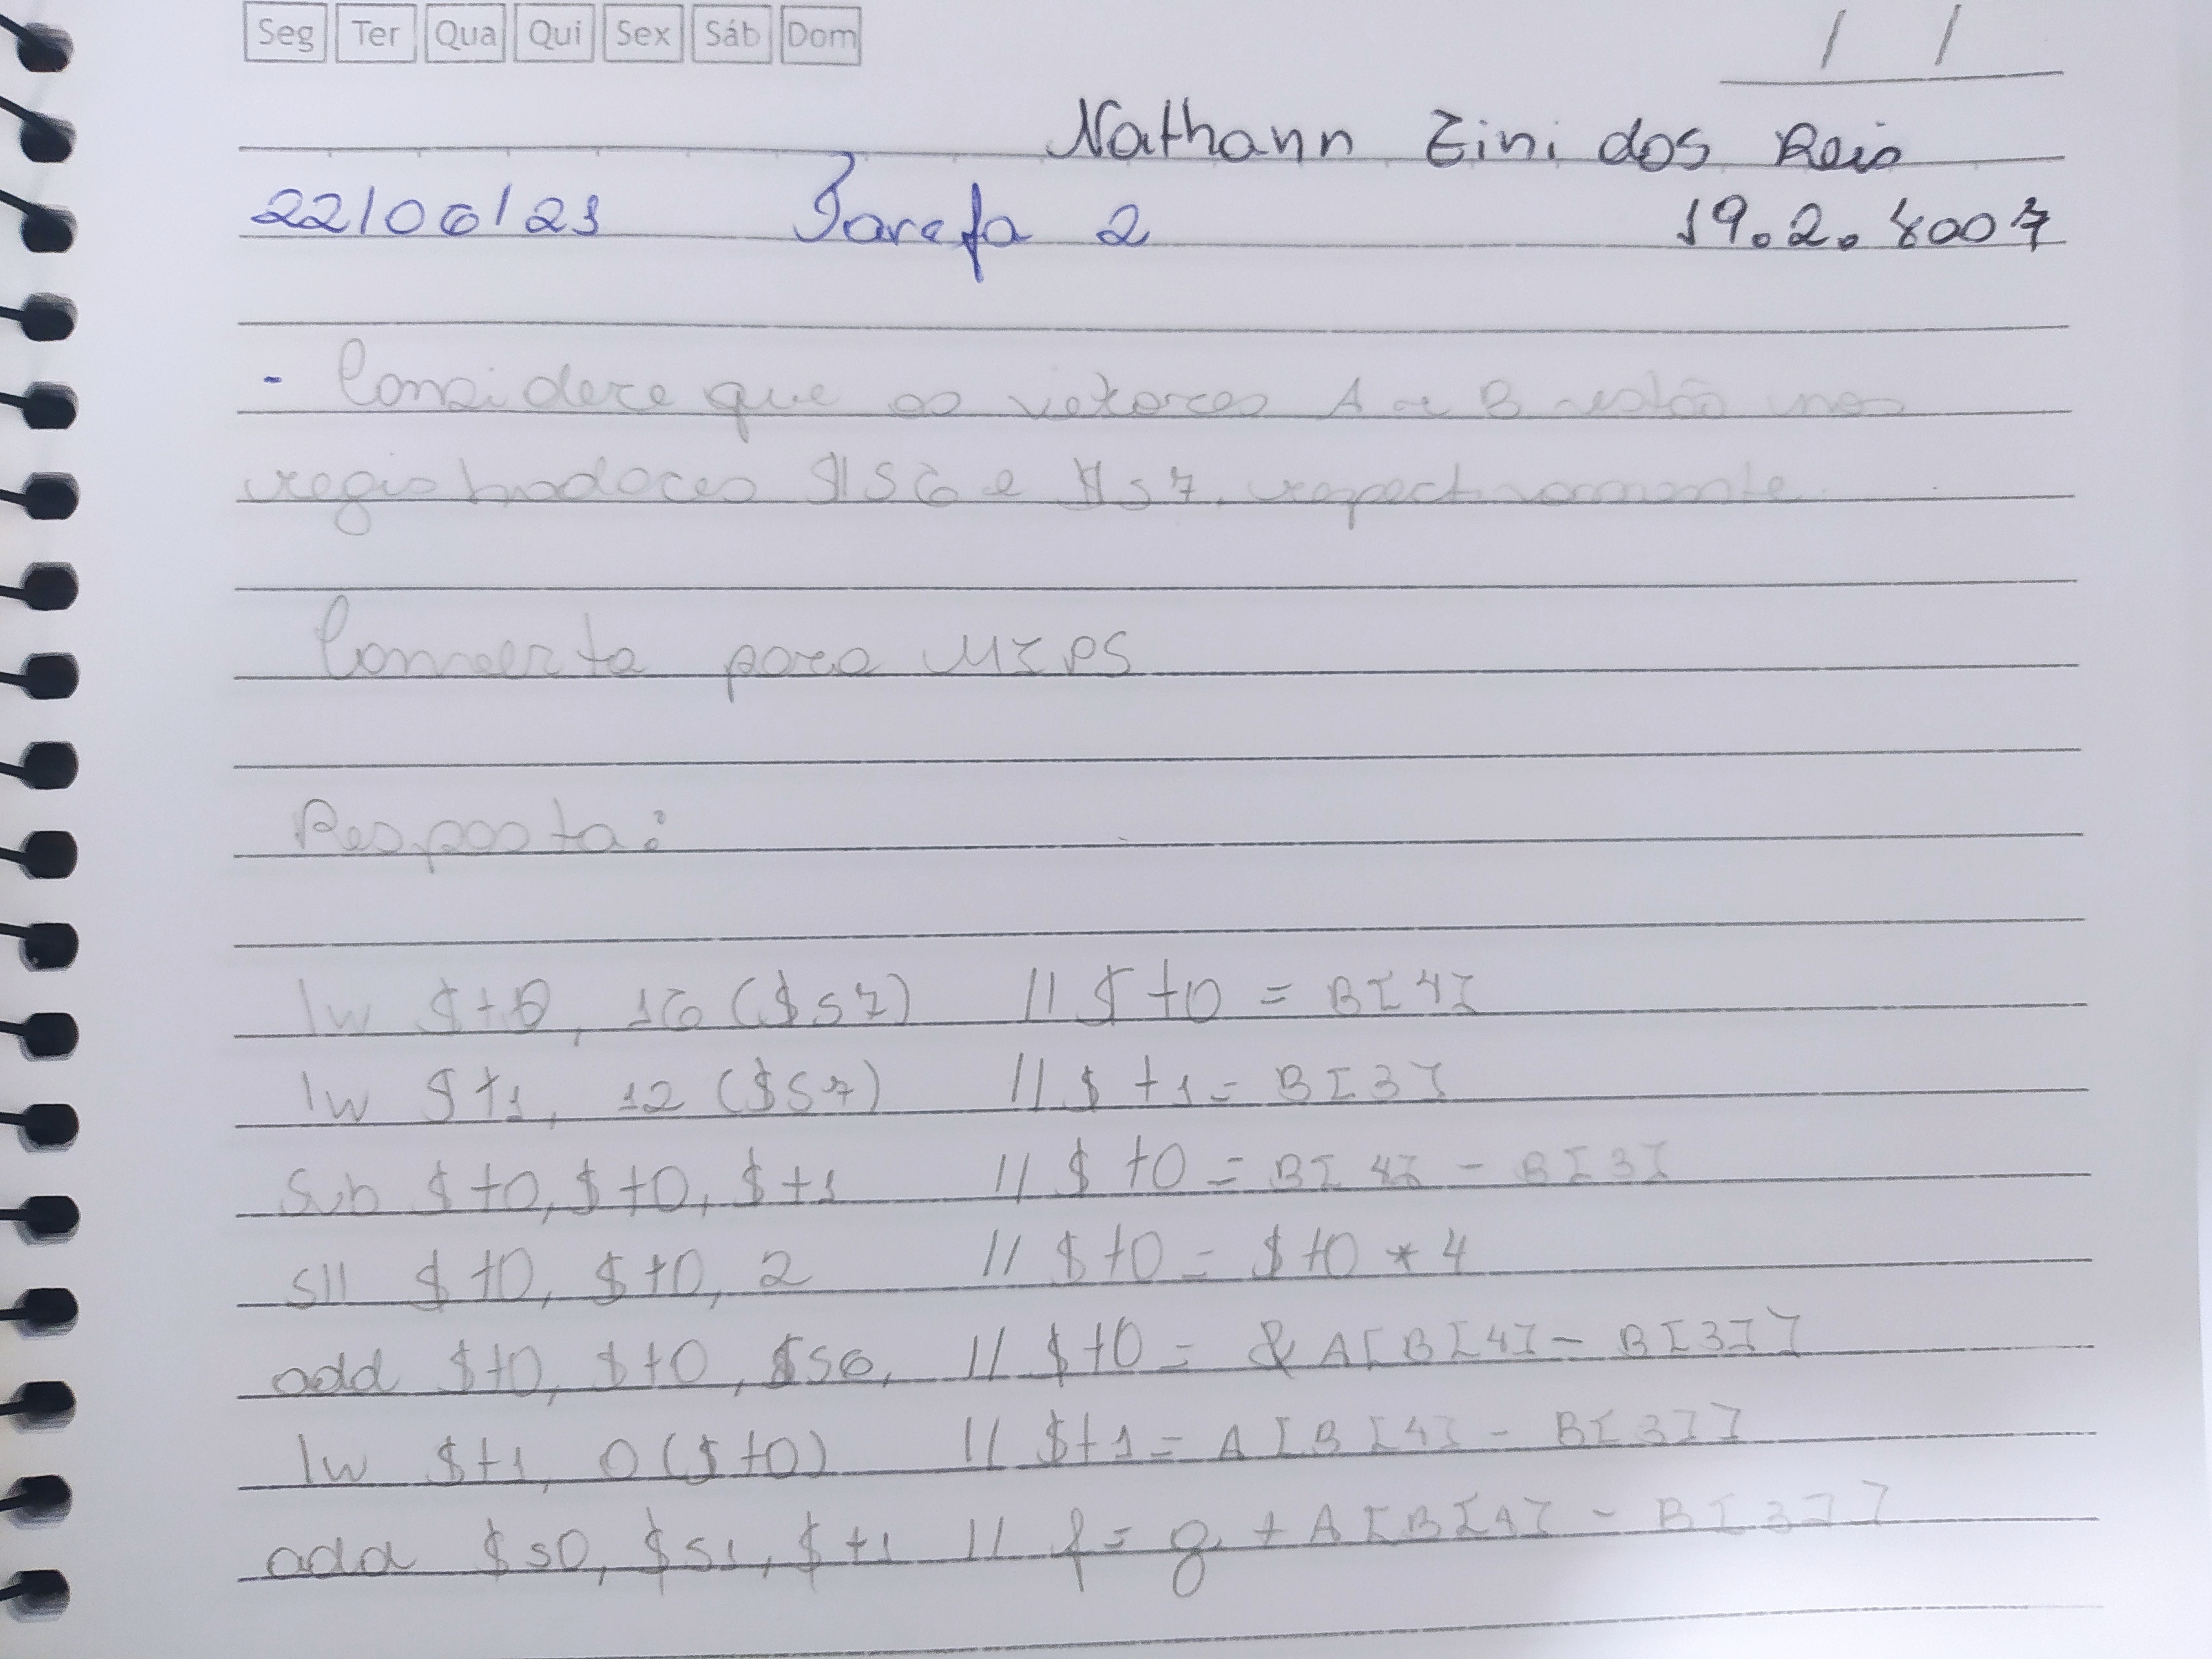 Seg Ter Qua Qui Sex Sáb Dom / /
Nathann Zini dos Reis
22/06/21 Tarefa 2 19.2.4007
- Considere que os vetores A e B estão nos
registradores $s6 e $s7, respectivamente.
Converta para MIPS
Resposta:
lw $t0, 16($s7) // $t0 = B[4]
lw $t1, 12($s7) // $t1 = B[3]
sub $t0, $t0, $t1 // $t0 = B[4] - B[3]
sll $t0, $t0, 2 // $t0 = $t0 * 4
add $t0, $t0, $s6, // $t0 = &A[B[4] - B[3]]
lw $t1, 0($t0) // $t1 = A[B[4] - B[3]]
add $s0, $s1, $t1 // f = g + A[B[4] - B[3]]